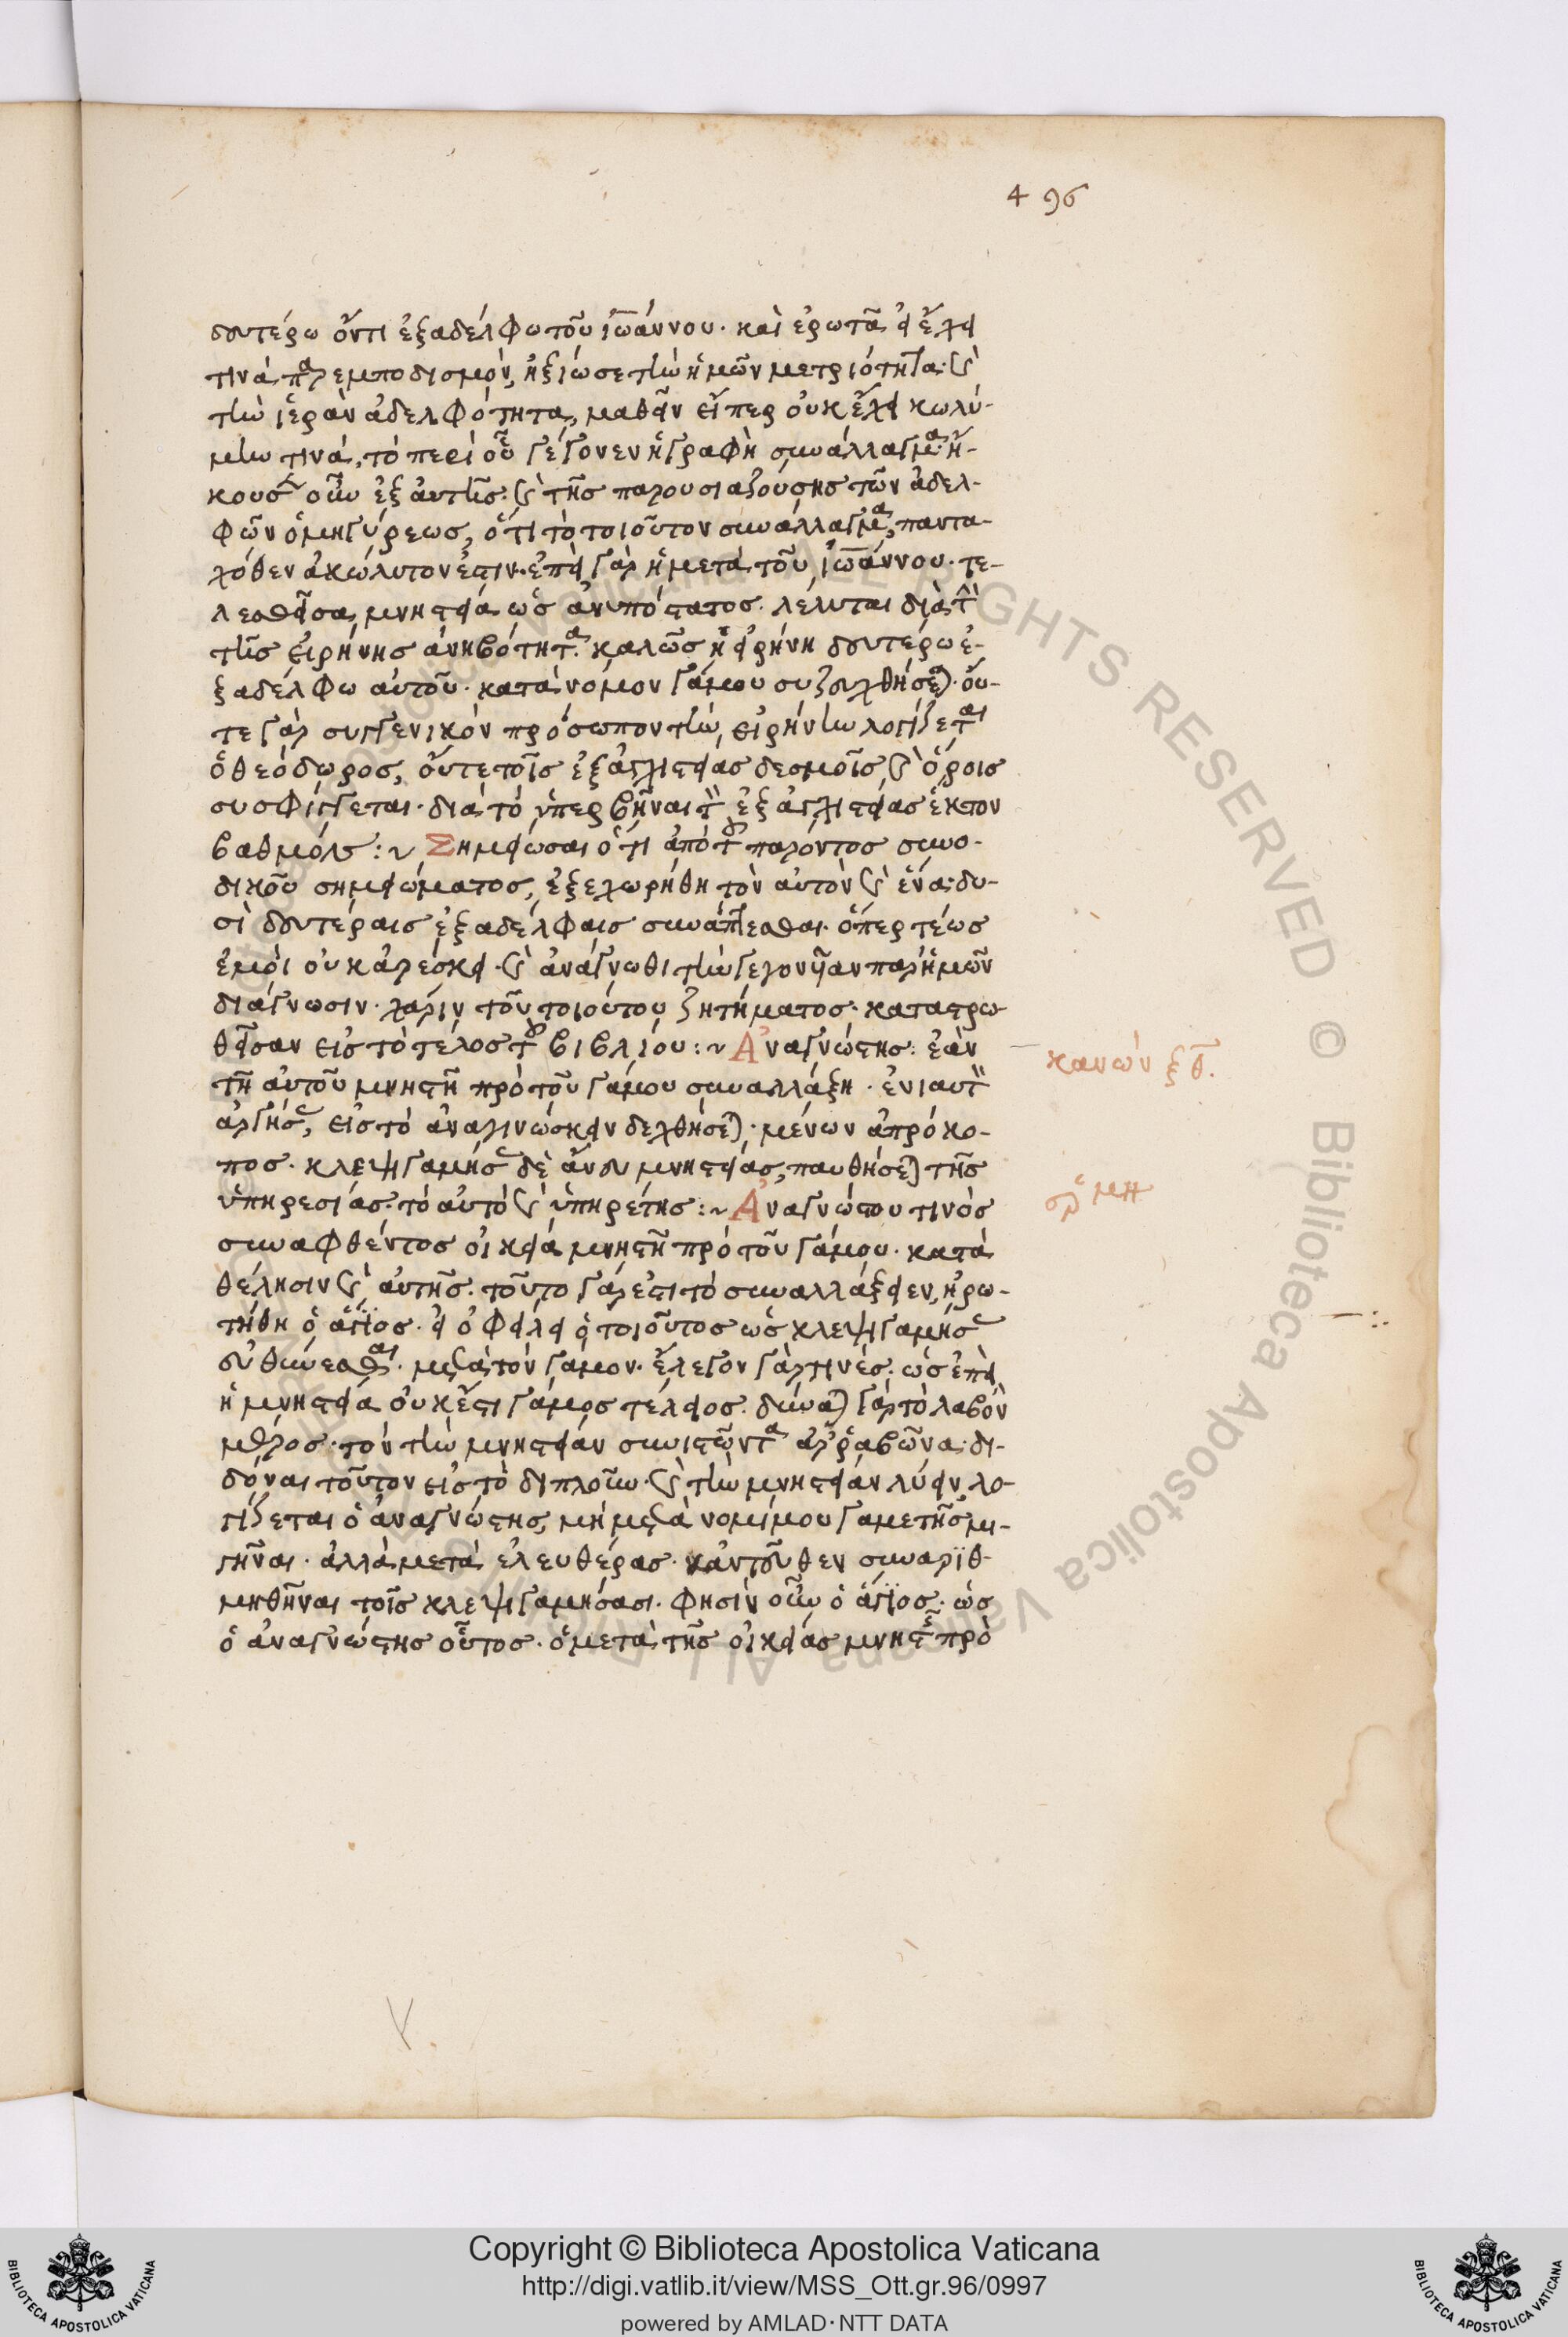 496
δευτέρω ὄντι ἐξαδέλφω τοῦ ἰωάννου· καὶ ἐρωτᾶ εἰ ἔχει
τινὰ παρεμποδισμὸν, ἠξίωσε τὴν ἡμῶν μετριότητα· καὶ
τὴν ἱερὰν ἀδελφότητα, μαθεῖν εἴπερ οὐκ ἔχει κωλύ-
μην τινά, τὸ περὶ οὗ γέγονεν ἡ γραφὴ συνάλλαγμα· ἤ-
κουσεν οὖν ἐξ αὐτῆς· καὶ τῆς παρουσιαζούσης τῶν ἀδελ-
φῶν ὁμηγύρεως, ὅτι τὸ τοιοῦτον συνάλλαγμα, παντα-
χόθεν ἀκώλυτον ἐστιν· ἐπεὶ γὰρ ἡ μετὰ τοῦ ἰωάννου· τε-
λεσθεῖσα μνηστεία ὡς ἀνυπόστατος· λέλυται διὰ τὴν
τῆς εἰρήνης ἀνηβότητα· καλῶς ἡ εἰρήνη δευτέρω ἐ-
ξαδέλφω αὐτοῦ· κατὰ νόμον γάμου συζευχθήσεται· οὔ-
τε γὰρ συγγενικὸν πρόσωπον τὴν εἰρήνην λογίζεται
ὁ θεόδωρος, οὔτε τοῖς ἐξ ἀγχιστείας δεσμοῖς καὶ ὅροις
συσφίγγεται· διὰ τὸ ὑπερβῆναι τὸν ἐξ ἀγχιστείας ἕκτον
βαθμόν:~ Σημείωσαι ὅτι ἀπὸ τοῦ παρόντος συνο-
δικοῦ σημειώματος, ἐξεχωρήθη τὸν αὐτὸν καὶ ἕνα· δυ-
σὶ δευτέραις ἐξαδέλφαις συνάπτεσθαι· ὅπερ τέως
ἐμοὶ οὐκ ἀρέσκει· καὶ ἀνάγνωθι τὴν γεγονυῖαν παρ' ἡμῶν
διάγνωσιν· χάριν τοῦ τοιούτου ζητήματος· καταστρω-
θεῖσαν εἰς τὸ τέλος τοῦ βιβλίου:~ Ἀναγνώστης: ἐὰν
τῆ αὐτοῦ μνηστῆ πρὸ τοῦ γάμου συναλλάξη· ἐνιαυτὸν
ἀργήσας, εἰς τὸ ἀναγινώσκειν δεχθήσεται· μένων ἀπρόκο-
πος· κλεψιγαμήσας δὲ ἄνευ μνηστείας, παυθήσεται τῆς
ὑπηρεσίας· τὸ αὐτὸ καὶ ὑπηρέτης:~ Ἀναγνώστου τινὸς
συναφθέντος οἰκεία μνηστῆ πρὸ τοῦ γάμου· κατὰ
θέλησιν καὶ αὐτῆς· τοῦτο γάρ ἐστι τὸ συναλλάξειεν, ἠρω-
τήθη ὁ ἅγιος· εἰ ὀφείλει ὁ τοιοῦτος ὡς κλεψιγαμήσας
εὐθύνεσθαι· μετὰ τὸν γάμον· ἔλεγον γάρ τινές· ὡς ἐπεὶ
ἡ μνηστεία οὐκ ἔστι γάμος τέλειος· δύναται γὰρ τὸ λαβὸν
μέρος· τὸν τὴν μνηστείαν συνιστῶντα ἀρραβῶνα· δι-
δόναι τοῦτον εἰς τὸ διπλοῦν· καὶ τὴν μνηστείαν λύειν, λο-
γίζεται ὁ ἀναγνώστης, μὴ μετὰ νομίμου γαμετῆς μι-
γῆναι· ἀλλὰ μετὰ ἐλευθέρας· κἀντεῦθεν συναριθ-
μηθῆναι τοῖς κλεψιγαμήσασι· φησὶν οὖν ὁ ἅγιος· ὡς
ὁ ἀναγνώστης οὗτος· ὁ μετὰ τῆς οἰκείας μνηστῆς πρὸ
κανὼν ξθ.
Copyright © Biblioteca Apostolica Vaticana
http://digi.vatlib.it/view/MSS_Ott.gr.96/0997
powered by AMLAD·NTT DATA
BIBLIOTECA APOSTOLICA VATICANA
BIBLIOTECA APOSTOLICA VATICANA